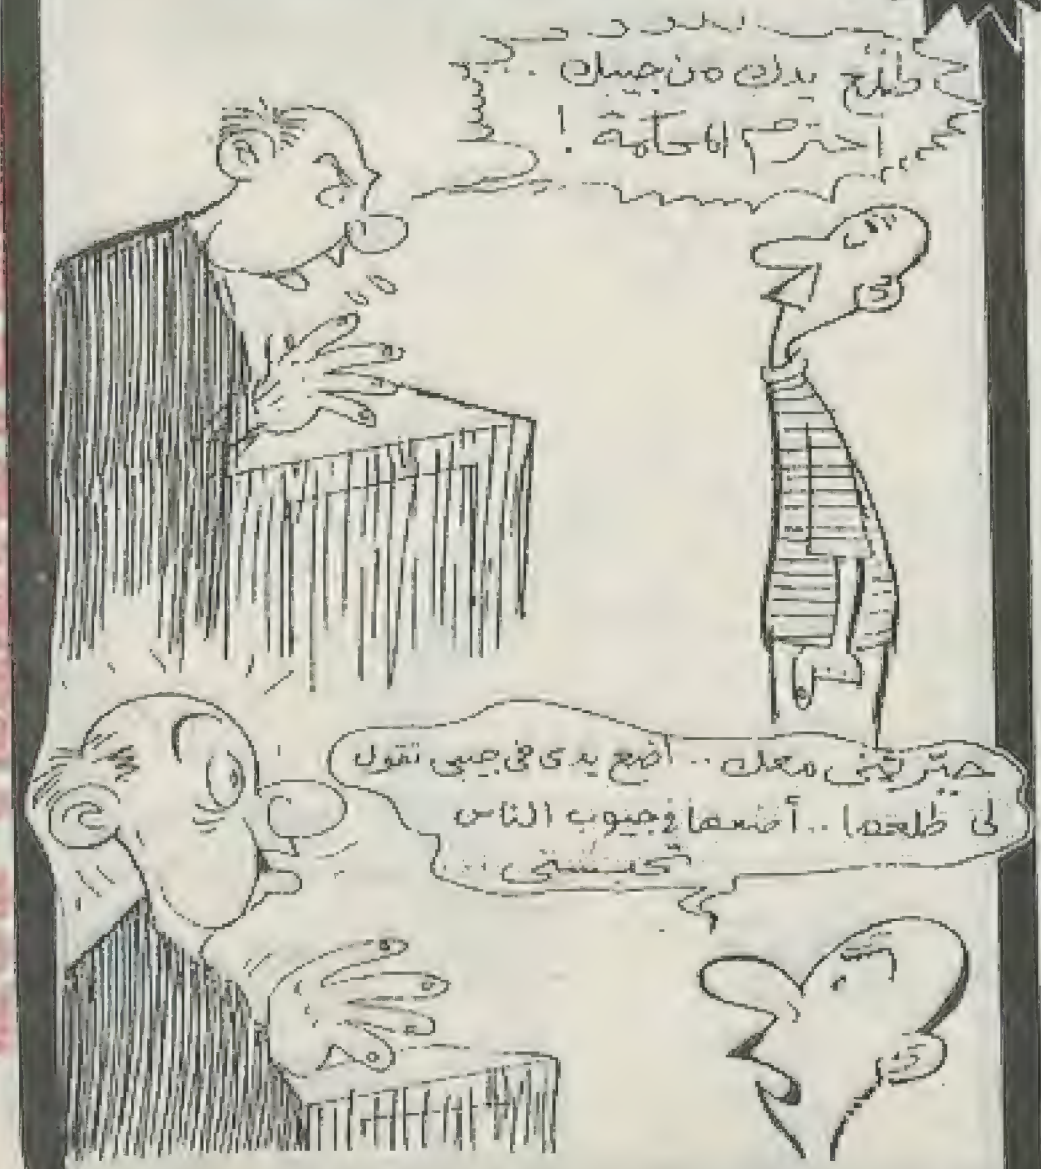 طلّع يدك من جيبك ..
احترم المحكمة !
حيّرتني معك .. أضع يدي في جيبي تقول
لي طلعها .. أضعها في جيوب الناس
تحبسني ..